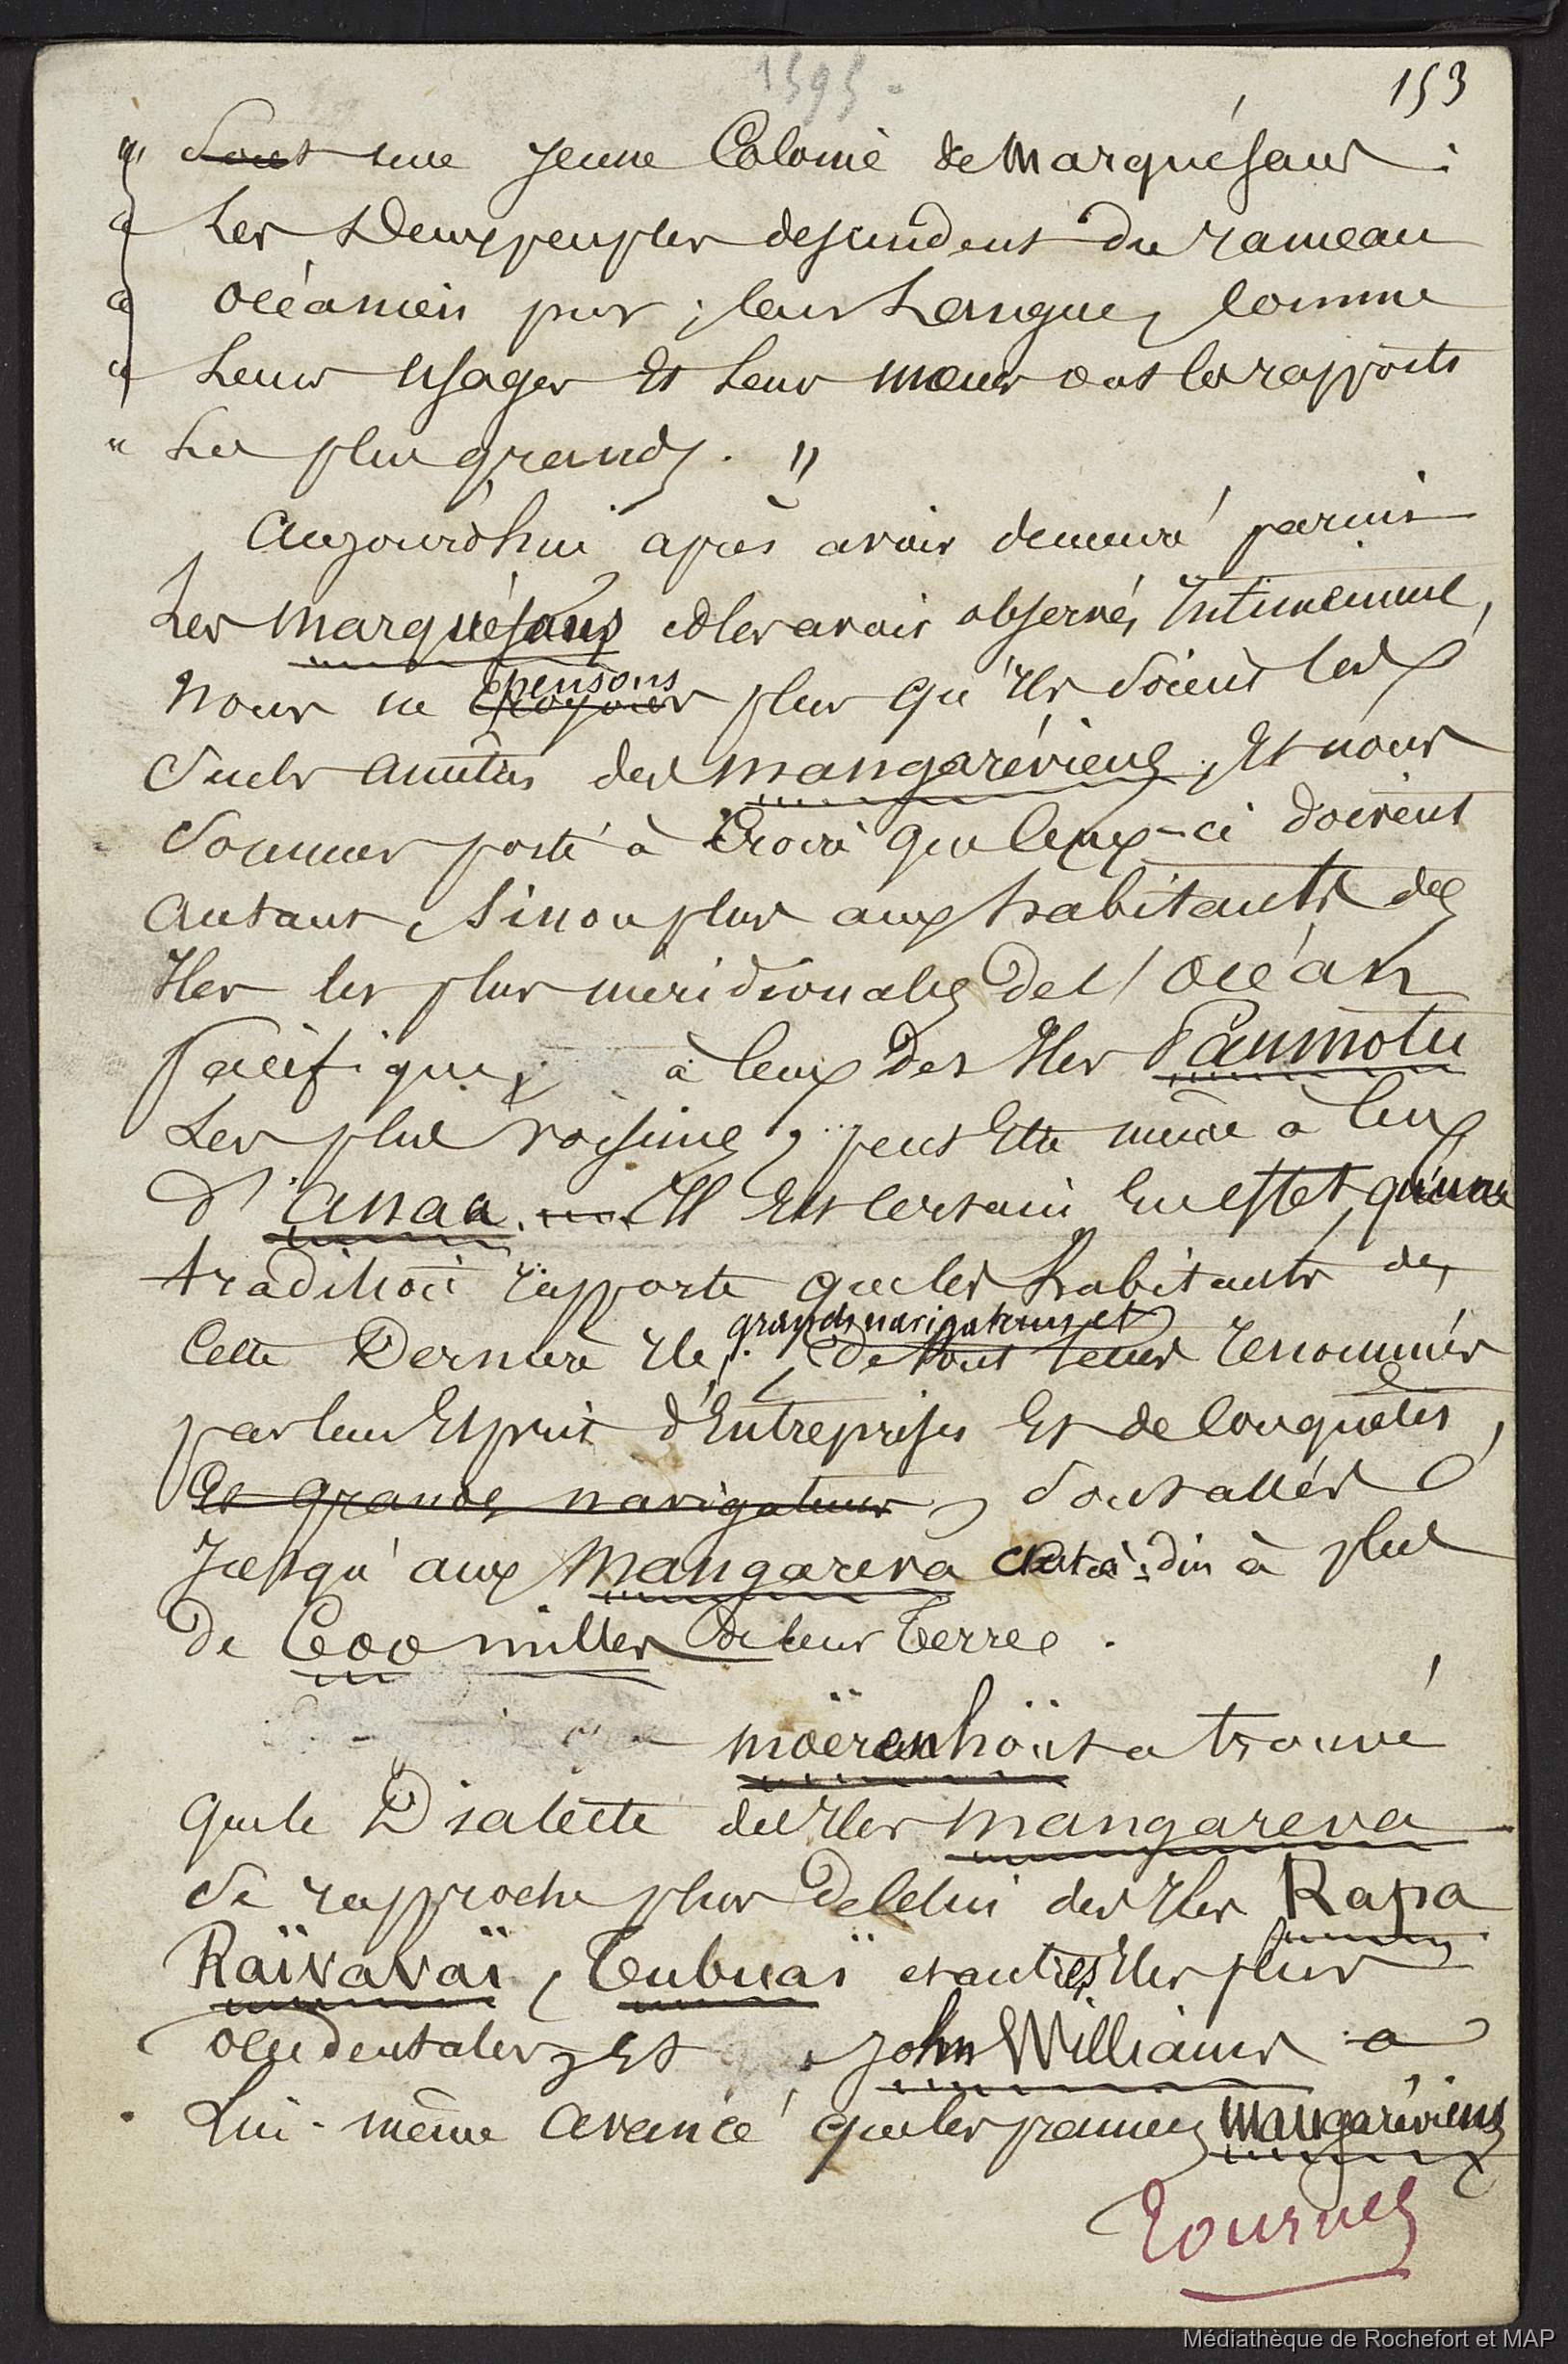 1595.
153
" sont une jeune Colonie de Marquésans :
" Les Deux peuples descendent du rameau
" océanien pur ; leur Langue, comme
" Leurs usages et leurs mœurs ont les rapports
" Les plus grands. "
Aujourd'hui après avoir demeuré parmi
Les Marquésans et les avoir observés Intimement,
Nous ne croyons pensons plus qu'Ils soient les
seuls ancêtres des Mangaréviens, et nous
sommes porté à croire que ceux-ci doivent
autant, sinon plus aux habitants des
Iles les plus méridionales de l'océan
Pacifique, à ceux des Iles Paumotu
Les plus voisines, peut être même à ceux
d'Anaa. Il est certain en effet, qu'une
tradition rapporte que les habitants de
cette Dernière Ile, grands navigateurs et de tout temps renommés
par leur Esprit d'Entreprises et de Conquêtes,
et grands navigateurs, sont allés
Jusqu'aux Mangareva c'est-à-dire à plus
de 600 milles de leur Terre.
Moërenhoüt a trouvé
que le Dialecte des Iles Mangareva
se rapproche plus de celui des Iles Rapa
Raïvavaï, Tubuaï et autres Iles plus
occidentales, et John Williams a
Lui-même avancé que les premiers Mangaréviens
Tournez
Médiathèque de Rochefort et MAP